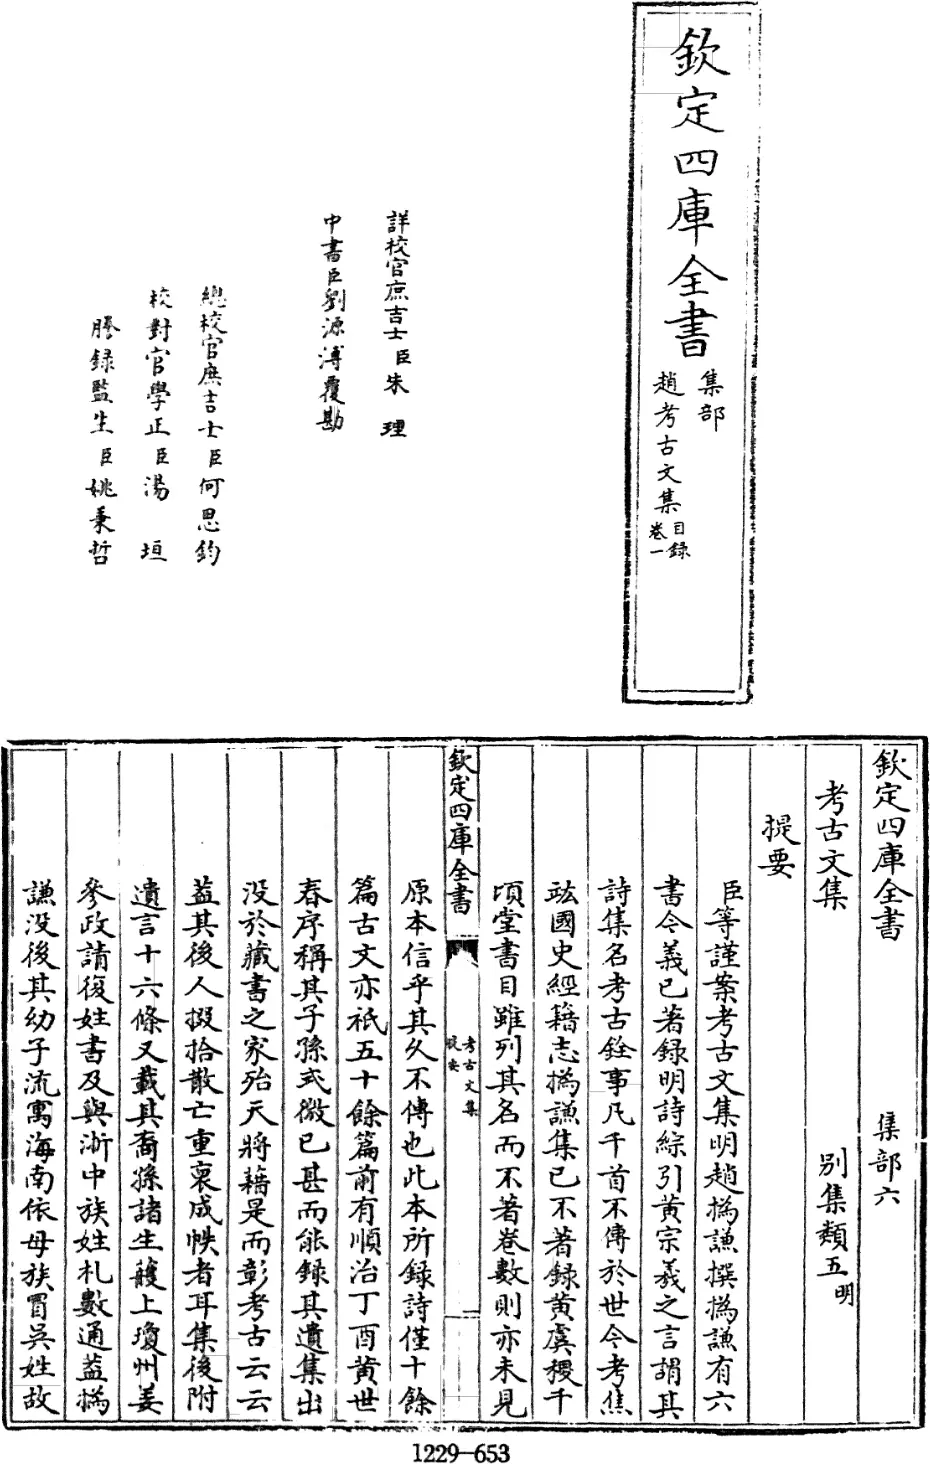 欽定四庫全書
集部
趙考古文集
目録
卷一
詳校官庶吉士臣朱理
中書臣劉源溥覆勘
總校官庶吉士臣何思鈞
校對官學正臣湯垣
謄録監生臣姚秉哲
欽定四庫全書 集部六
考古文集 别集類五明
提要
臣等謹案考古文集明趙撝謙撰撝謙有六
書令義已著録明詩綜引黄宗羲之言謂其
詩集名考古銓事凡千首不傳於世今考焦
竑國史經籍志撝謙集已不著録黄虞稷千
頃堂書目雖列其名而不著卷數則亦未見
欽定四庫全書
考古文集
提要
一
原本信乎其久不傳也此本所録詩僅十餘
篇古文亦祇五十餘篇前有順治丁酉黄世
春序稱其子孫式微已甚而能録其遺集出
没於藏書之家殆天將藉是而彰考古云云
葢其後人掇拾散亡重裒成帙者耳集後附
遺言十六條又載其裔孫諸生頀上瓊州姜
參政請復姓書及與浙中族姓札數通葢撝
謙没後其幼子流寓海南依母族冒吳姓故
1229-653